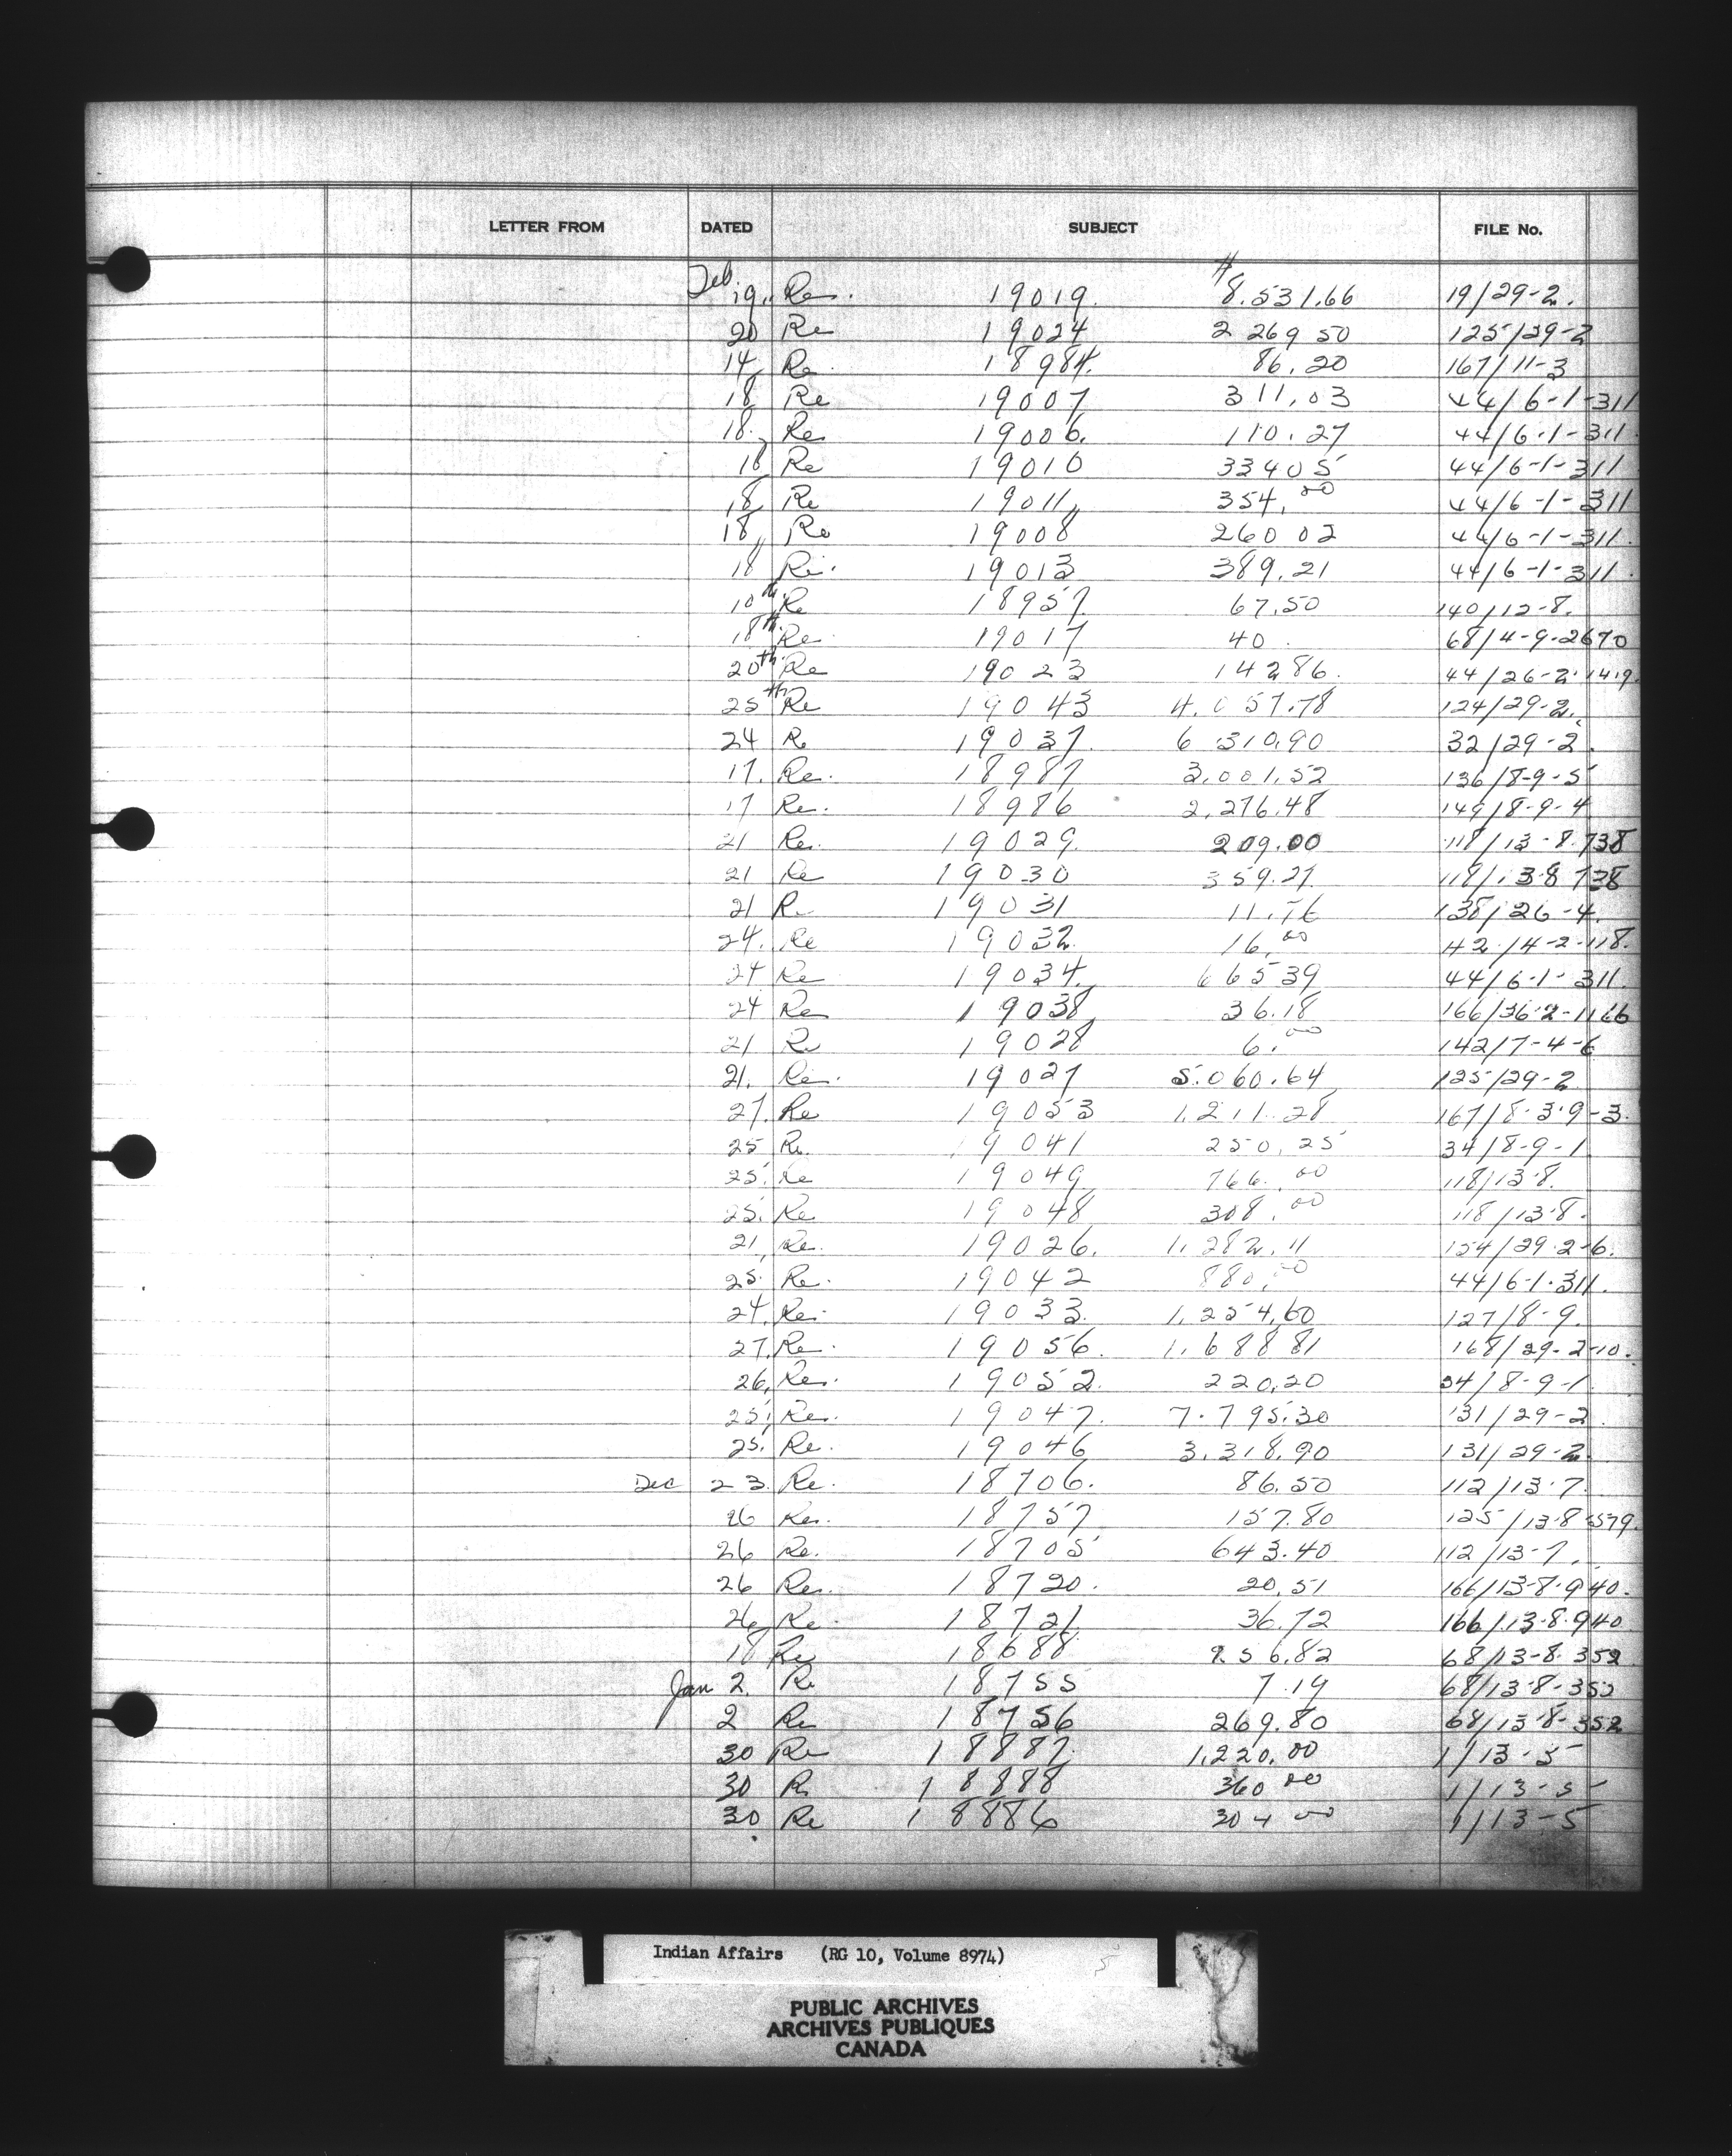 LETTER FROM DATED SUBJECT FILE No.
Feb 19 Re. 19019. $8.531.66 19/29-2.
20 Re 19024 2 269 50 125/29-2
14 Re. 18984. 86.20 167/11-3
18 Re 19007 311.03 44/6-1-311
18 Re 19006. 110.27 44/6.1-311.
18 Re 19010 334 05 44/6-1-311
18 Re 19011 354.00 44/6-1-311
18 Re 19008 260 02 44/6-1-311.
18 Re. 19013 389.21 44/6-1-311.
10th Re 18957 67.50 140/12-8.
18th Re 19017 40. 68/4-9-2670
20th Re 19023 142 86. 44/26-2.1419.
25th Re 19043 4.057.78 124/29-2.
24 Re 19037. 6 310.90 32/29-2.
17. Re. 18987 3,001.52 136/8-9-5
17 Re. 18986 2,276.48 149/8-9-4
21 Re. 19029. 209.00 118/13-8.738
21 Re 19030 359.27 118/13-8 738
21 Re 19031 11.76 138/26-4.
24. Re 19032. 16.00 42/4-2-118.
24 Re 19034. 665 39 44/6-1-311.
24 Re 19038 36.18 166/36.2-1166
21 Re 19028 6.00 142/7-4-6
21. Re. 19027 5.060.64 125/29-2
27. Re 19053 1.211.28 167/8.3.9-3.
25 Re. 19041 250.25 34/8-9-1
25. Re 19049 766.00 118/13.8.
25. Re 19048 308.00 118/13.8.
21 Re. 19026. 1,282.11 154/29.2-6.
25. Re. 19042 880.00 44/6-1.311.
24. Re. 19033. 1,254.60 127/8-9.
27. Re. 19056. 1.688 81 168/29-2-10.
26. Re. 19052. 220.20 34/8-9-1
25. Re. 19047. 7.795.30 131/29-2.
25. Re. 19046 3,318.90 131/29-2.
Dec 23. Re. 18706. 86.50 112/13.7.
26 Re. 18757 157.80 125/13.8-579.
26 Re. 18705 643.40 112/13-7.
26 Re. 18720. 20.51 166/13-8.940.
26 Re. 18721 36.72 166/13-8.940
18 Re 18688 956.82 68/13-8.352
Jan 2. Re 18755 7.19 68/13-8-352
2 Re 18756 269.80 68/13-8-352
30 Re 18887. 1,220.00 1/13-5
30 Re 18888 360 00 1/13-5
30 Re 18886 304 00 1/13-5
Indian Affairs (RG 10, Volume 8974)
PUBLIC ARCHIVES
ARCHIVES PUBLIQUES
CANADA